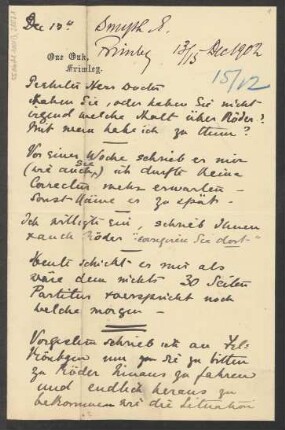 Dec 13th Smyth E.
Frimley 13/15 Dec 1902
One Oak,
Frimley.
15/12
Geehrter Herr Doctor
Haben Sie, oder haben Sie nicht
irgend welche Macht über Röder?
Mit wem habe ich zu thun?
Vor einer Woche schrieb er mir
(wie auch Sie) ich dürfte keine
Correctur mehr erwarten –
Sonst käme es zu spät –
Ich willigte ein, schrieb Ihnen
& auch Röder "corrigieren Sie dort"
Heute schickt er mir als
wäre dem nichts 30 Seiten
Partitur & verspricht noch
welche morgen –
Vorgestern schrieb ich an Frl.
um sie zu bitten
zu Röder hinaus zu fahren
und endlich heraus zu
bekommen wie die Situation